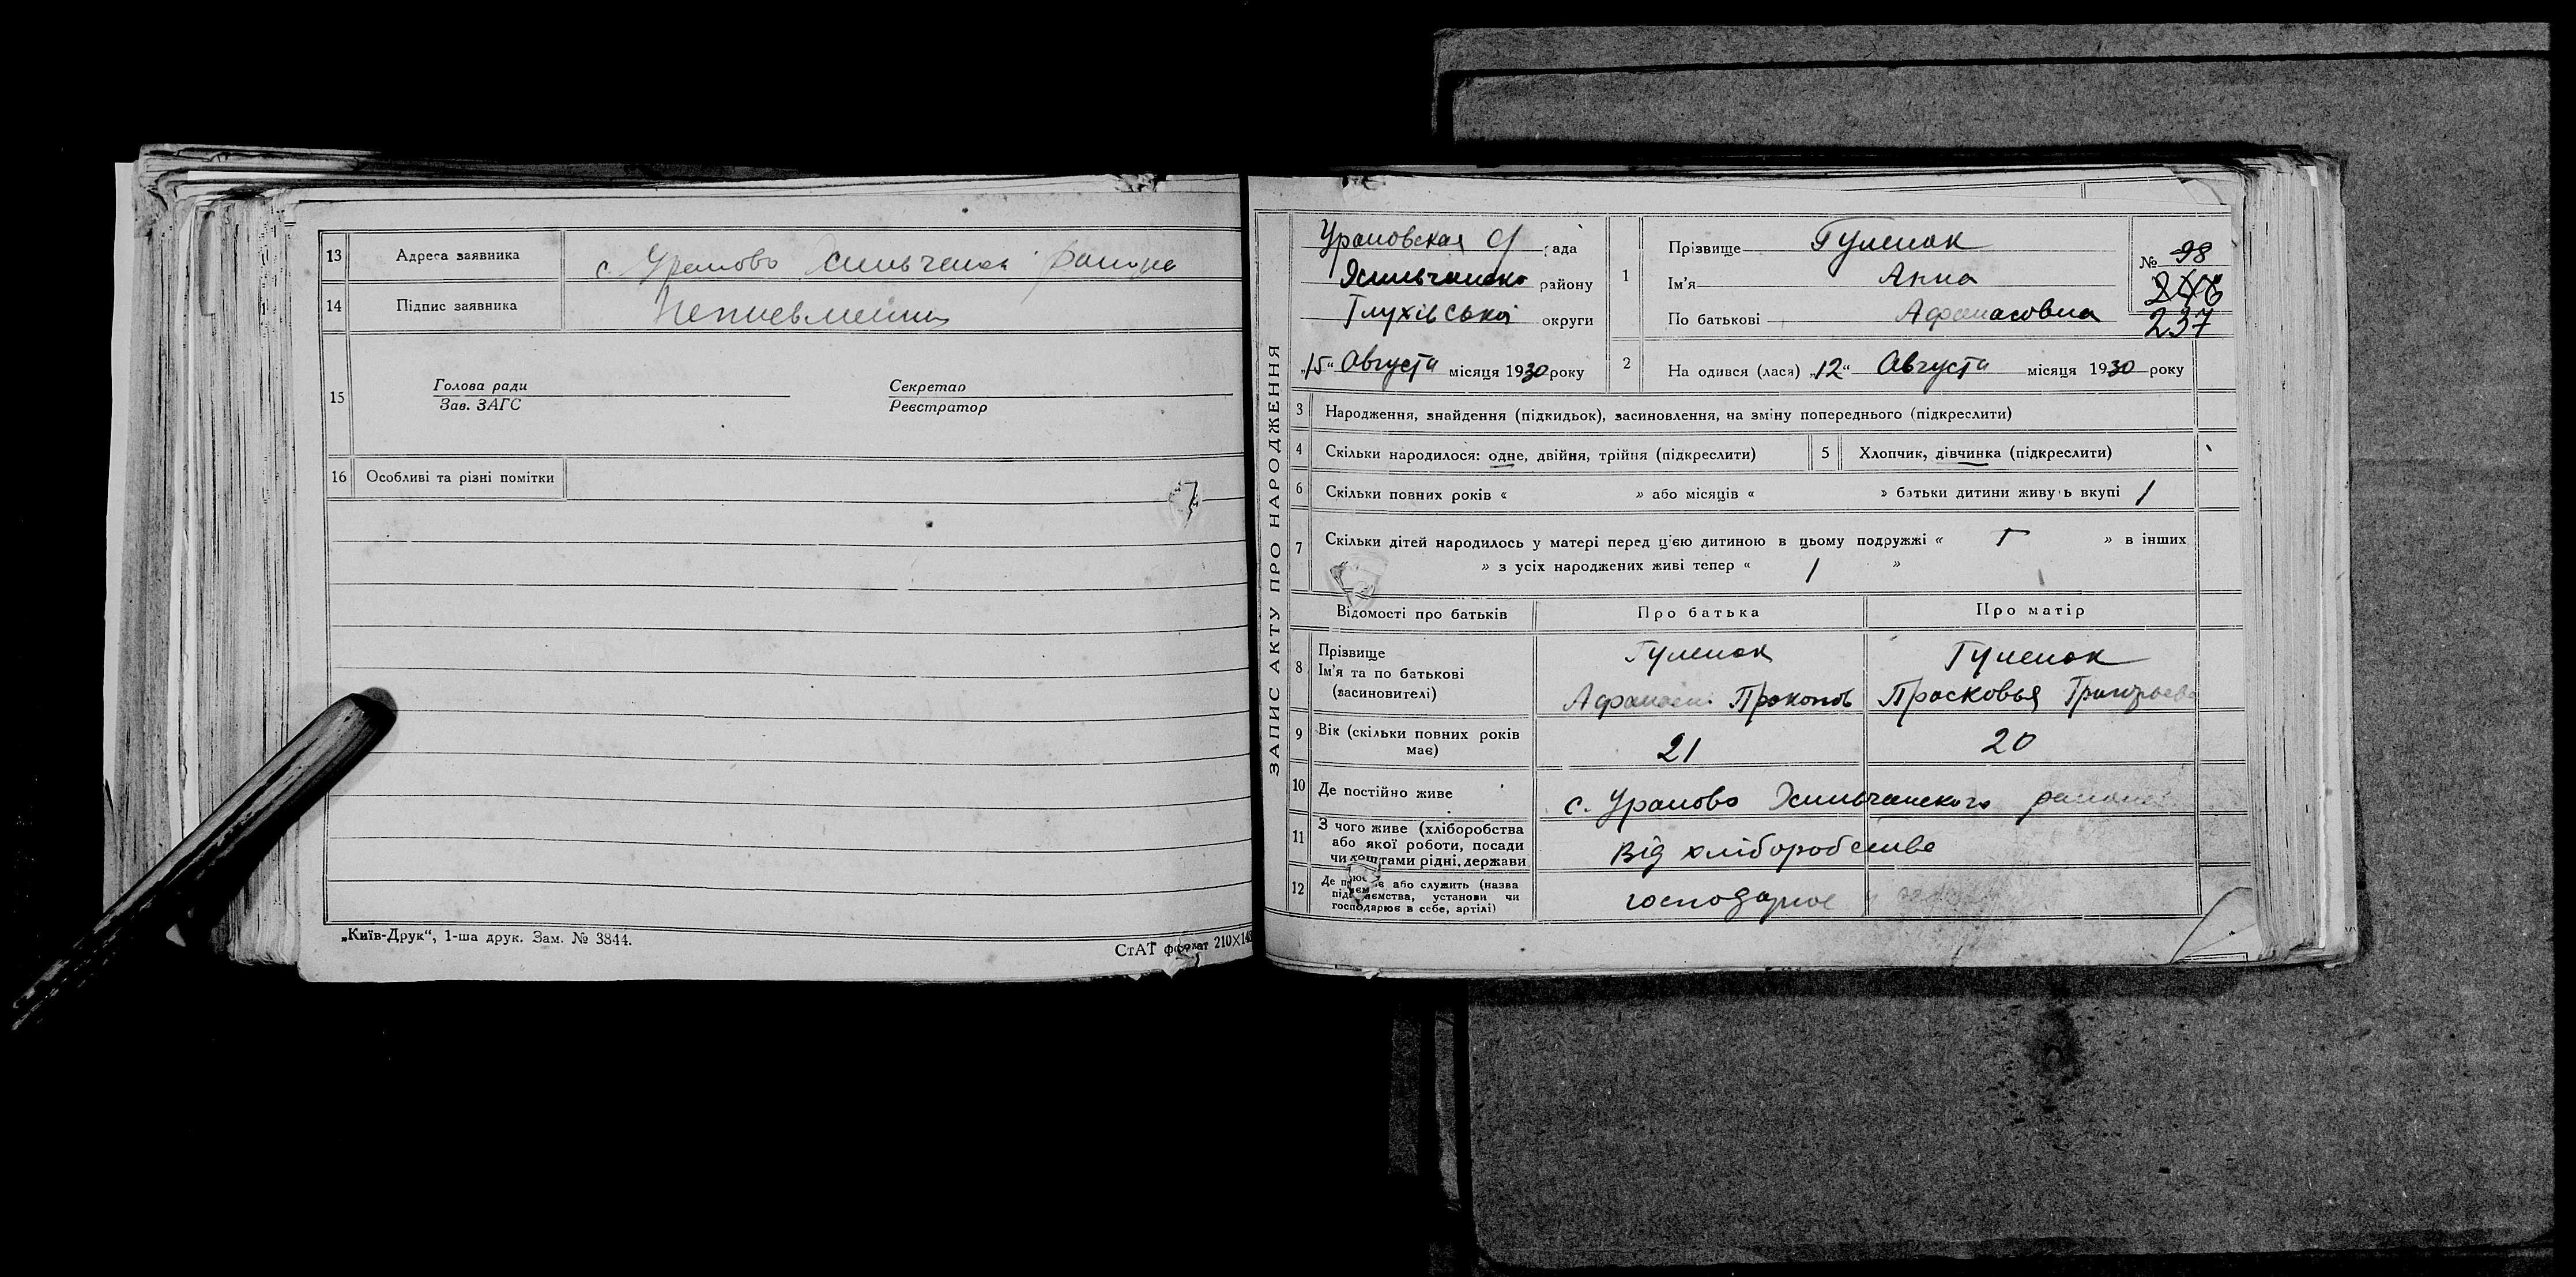 13 Адреса заявника с. Урапово Хильчанск району
14 Підпис заявника Неписьменний
15 Голова ради Секретар
Зав. ЗАГС Реєстратор
16 Особливі та різні помітки
„Київ-Друк“, 1-ша друк. Зам. № 3844.
СтАТ формат 210×148
ЗАПИС АКТУ ПРО НАРОДЖЕННЯ
рада
району
Глухівської округи
„15“ Августа місяця 1930 року
1 Прізвище Гуленок
Ім'я Анна
По батькові Афанасовна
№ 98
246
237
2 На одився (лася) „12“ Августа місяця 1930 року
3 Народження, знайдення (підкидьок), засиновлення, на зміну попереднього (підкреслити)
4 Скільки народилося: одне, двійня, трійня (підкреслити) 5 Хлопчик, дівчинка (підкреслити)
6 Скільки повних років « » або місяців « » батьки дитини живуть вкупі 1
7 Скільки дітей народилось у матері перед цією дитиною в цьому подружжі « » в інших
» з усіх народжених живі тепер « 1 »
Відомості про батьків Про батька Про матір
8 Прізвище Гуленок Гуленок
Ім'я та по батькові
(засновителі) Афанасий Прокопов Прасковья Григорьева
9 Вік (скільки повних років
має) 21 20
10 Де постійно живе с. района
11 З чого живе (хліборобства
або якої роботи, посади
чи коштами рідні, держави Від хліборобства
12 Де працює або служить (назва
підприємства, установи чи
господарює в себе, артілі) господарює